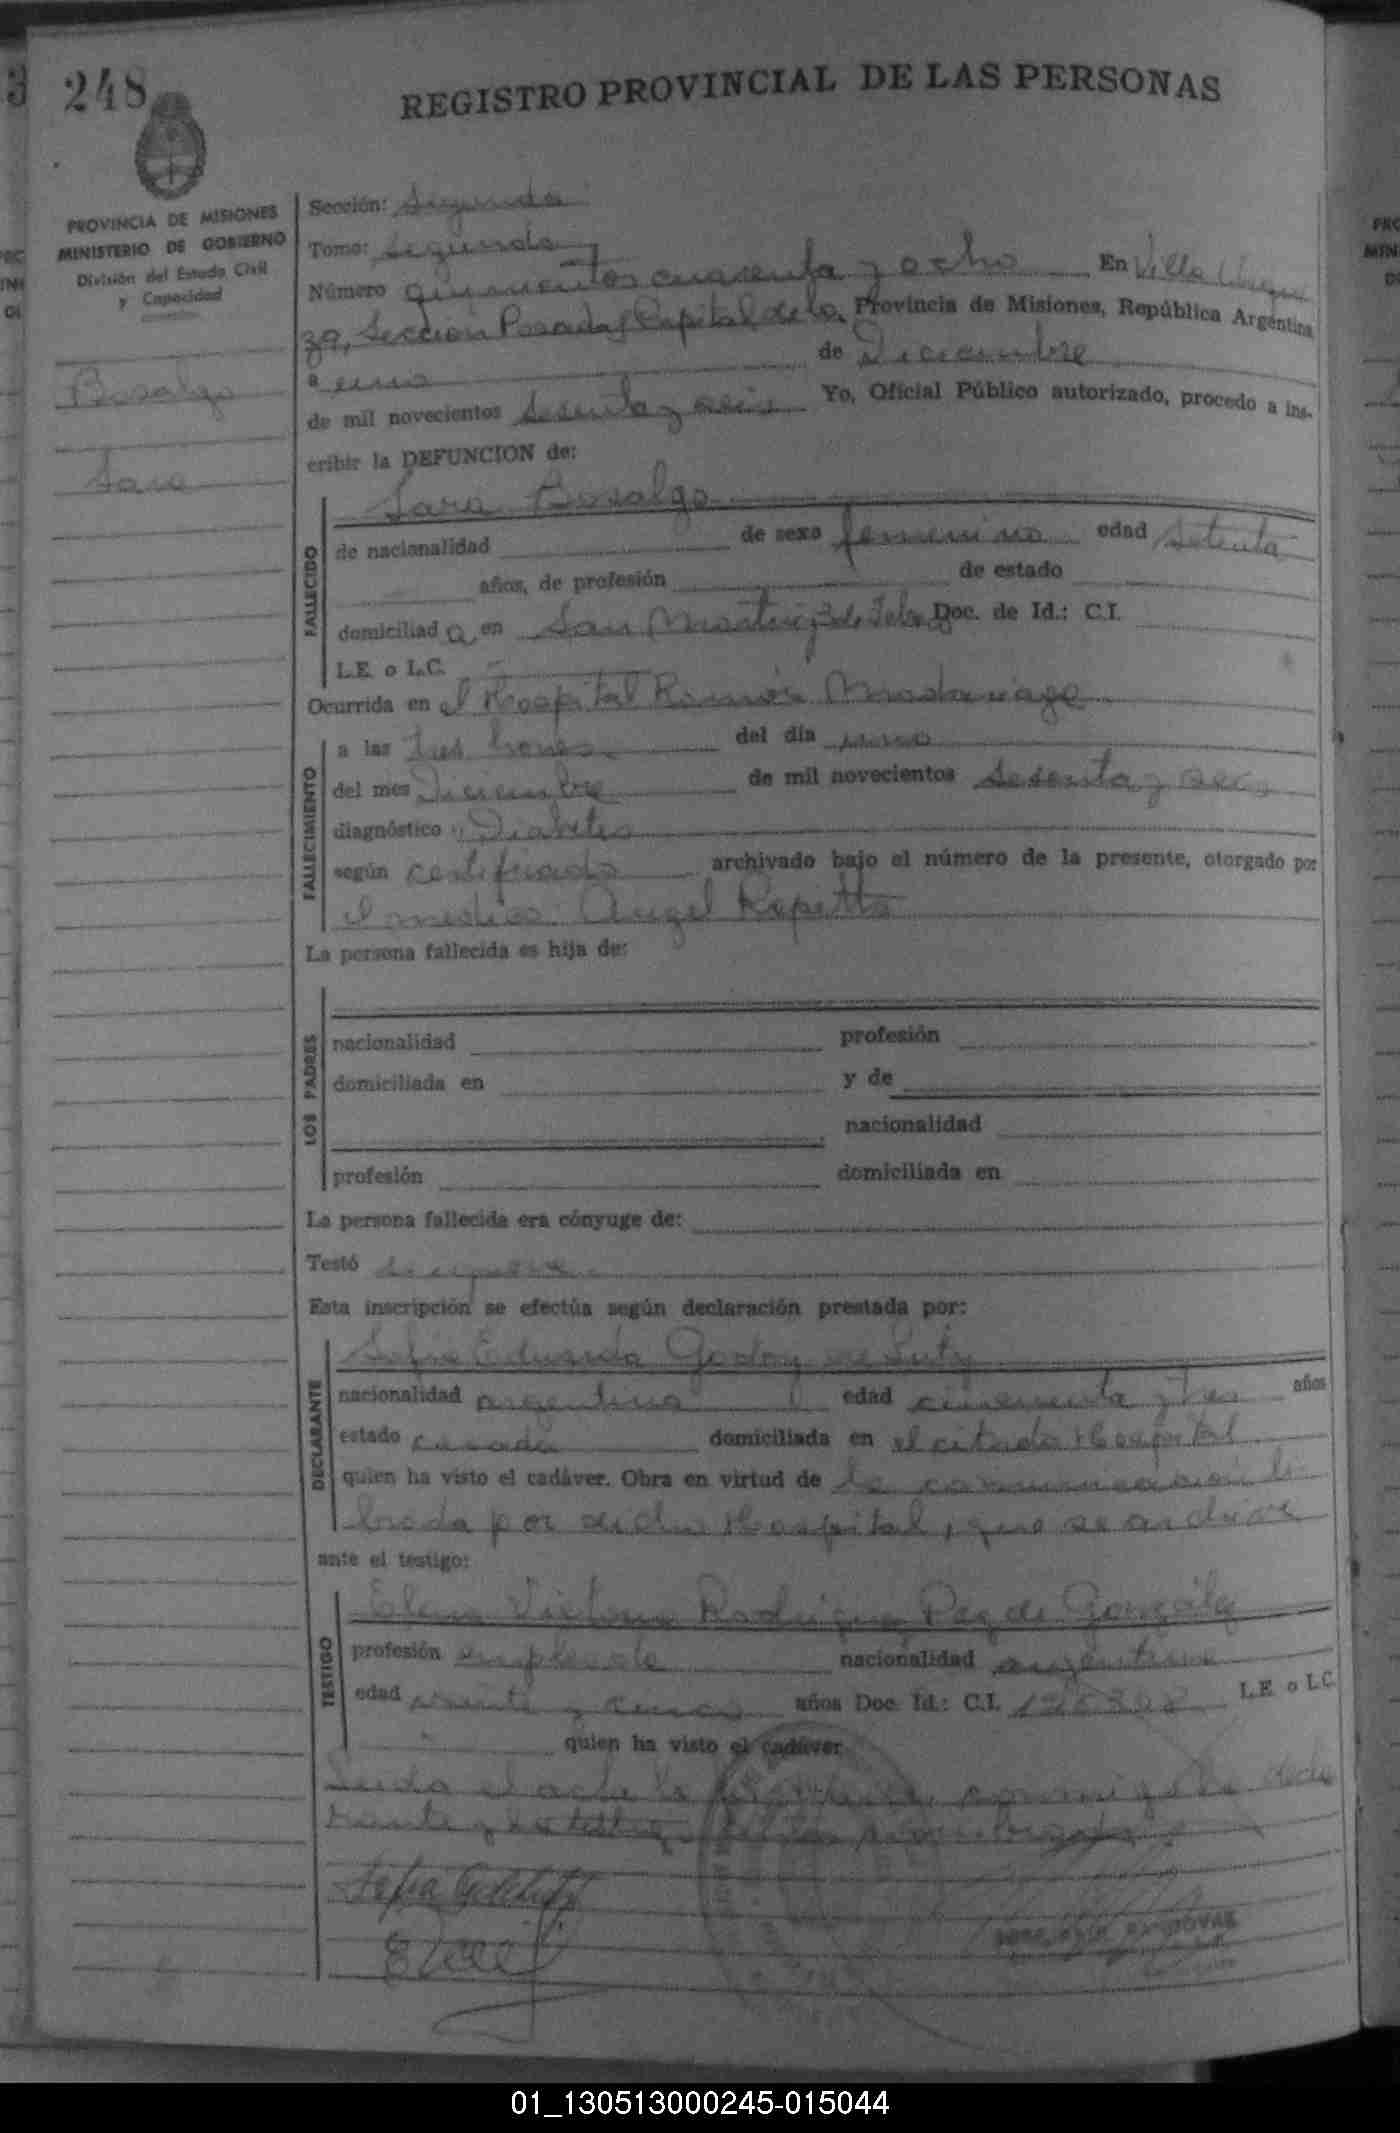 248
REGISTRO PROVINCIAL DE LAS PERSONAS
PROVINCIA DE MISIONES
MINISTERIO DE GOBIERNO
División del Estado Civil
y Capacidad
Bosalgo
Sara
Sección: Segunda
Tomo: Segundo
Número quinientos cuarenta y ocho En Villa Urqui
za, Sección Posadas Capital de la Provincia de Misiones, República Argentina
a uno de Diciembre
de mil novecientos sesenta y seis Yo, Oficial Público autorizado, procedo a ins-
cribir la DEFUNCION de:
Sara Bosalgo
FALLECIDO
de nacionalidad de sexo femenino edad setenta
años, de profesión de estado
domiciliad a en San Martín y 3 de Febrero Doc. de Id.: C.I.
L.E. o L.C.
Ocurrida en el Hospital Ramón Madariaga
FALLECIMIENTO
a las tres horas del día uno
del mes Diciembre de mil novecientos sesenta y seis
diagnóstico Diabetes
según certificado archivado bajo el número de la presente, otorgado por
el médico: Angel Repetto
La persona fallecida es hija de:
LOS PADRES
nacionalidad profesión
domiciliada en y de
nacionalidad
profesión domiciliada en
La persona fallecida era cónyuge de:
Testó se ignora
Esta inscripción se efectúa según declaración prestada por:
DECLARANTE
Sofia Eduarda Godoy de
nacionalidad argentina edad cincuenta y tres años
estado casada domiciliada en el citado Hospital
quien ha visto el cadáver. Obra en virtud de la comunicación li
brada por dicho Hospital, que se archiva
ante el testigo:
TESTIGO
Elena Victoria Rodríguez Paz de González
profesión empleada nacionalidad argentina
edad veinte y cinco años Doc. Id.: C.I. L.E. o L.C.
quien ha visto el cadáver
Leida el acta la conmigo la decla
rante y la testigo
01_130513000245-015044